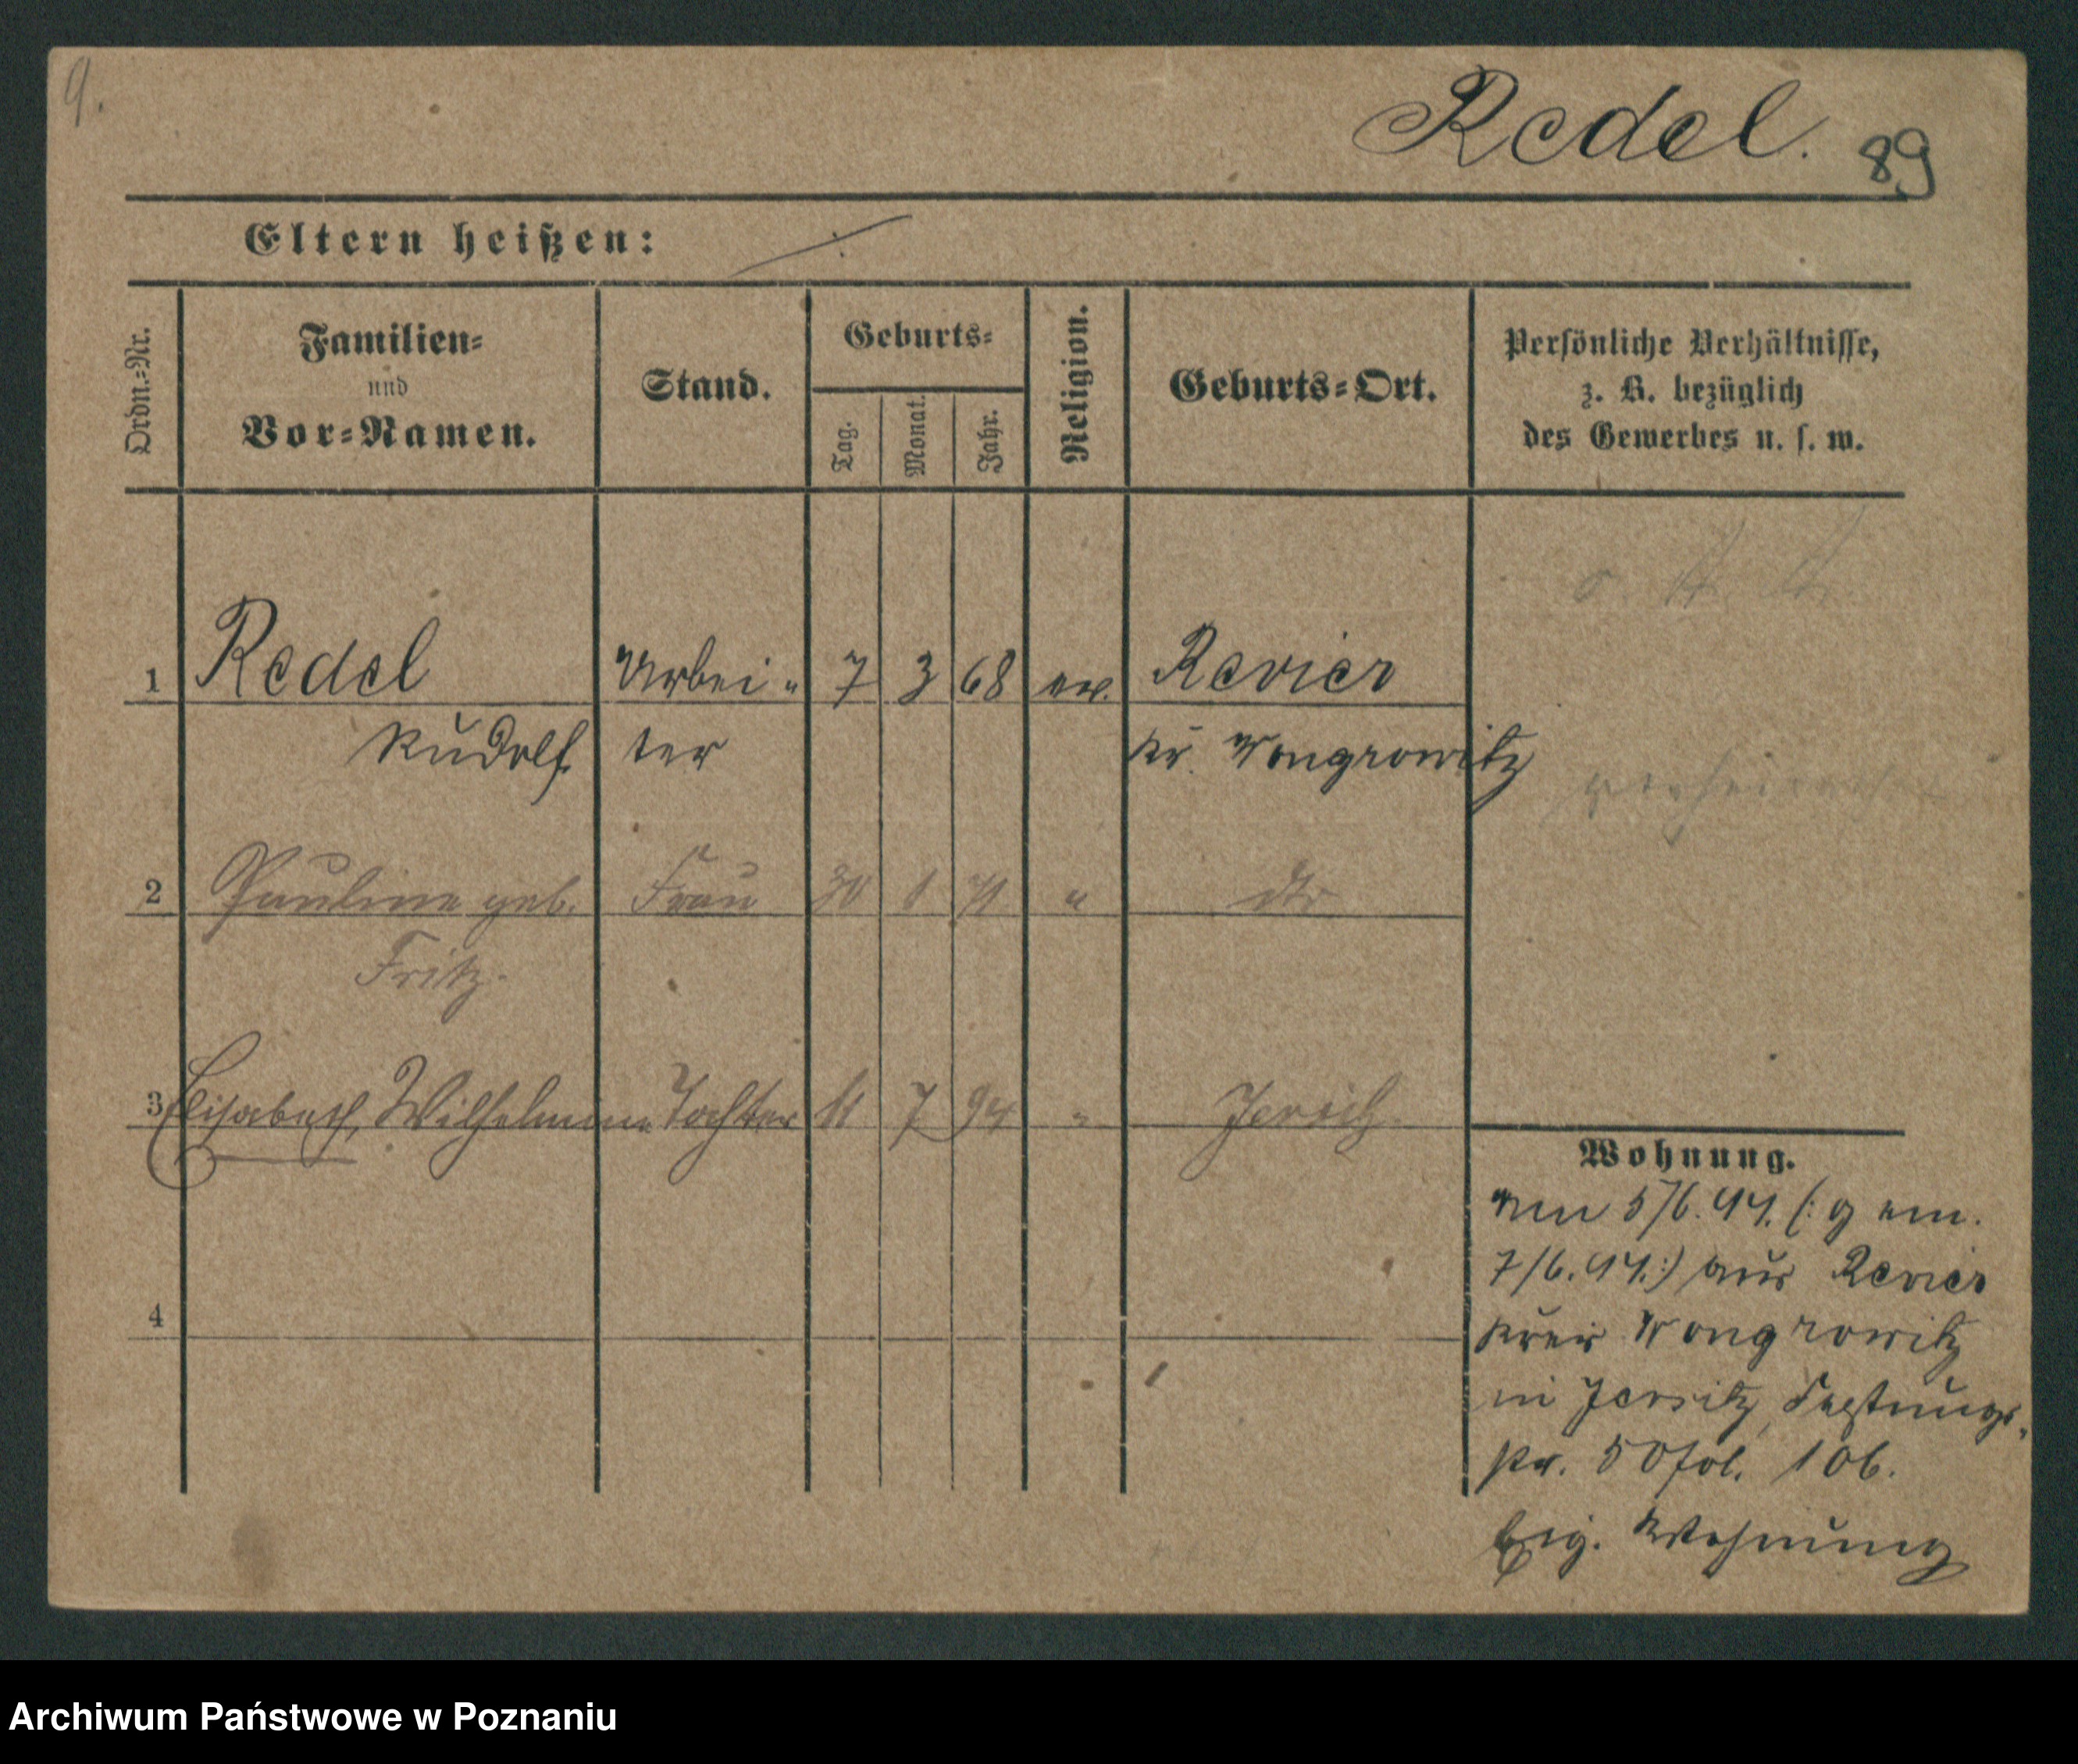 9.
Redel. 89
Eltern heißen: ./.
Ordn.=Nr.
Familien=
und
Vor=Namen.
Stand.
Geburts=
Tag.
Monat.
Jahr.
Religion.
Geburts=Ort.
Persönliche Verhältnisse,
z. B. bezüglich
des Gewerbes u. s. w.
1 Redel Arbei- 7 3 68 ev. Revier
Rudolf ter Kr. Wongrowitz
verheirathet
2 Pauline geb. Frau 30 1 71 " dto
Fritz.
3 Elisabeth, Wilhelmine Tochter 11 7 94 " Jersitz.
4
Wohnung.
Am 5/6. 94. (: gem.
7/6. 94. :) aus Revier
Kreis Wongrowitz
in Jersitz, Festungs-
50 fol. 106.
Eig. Wohnung
Archiwum Państwowe w Poznaniu